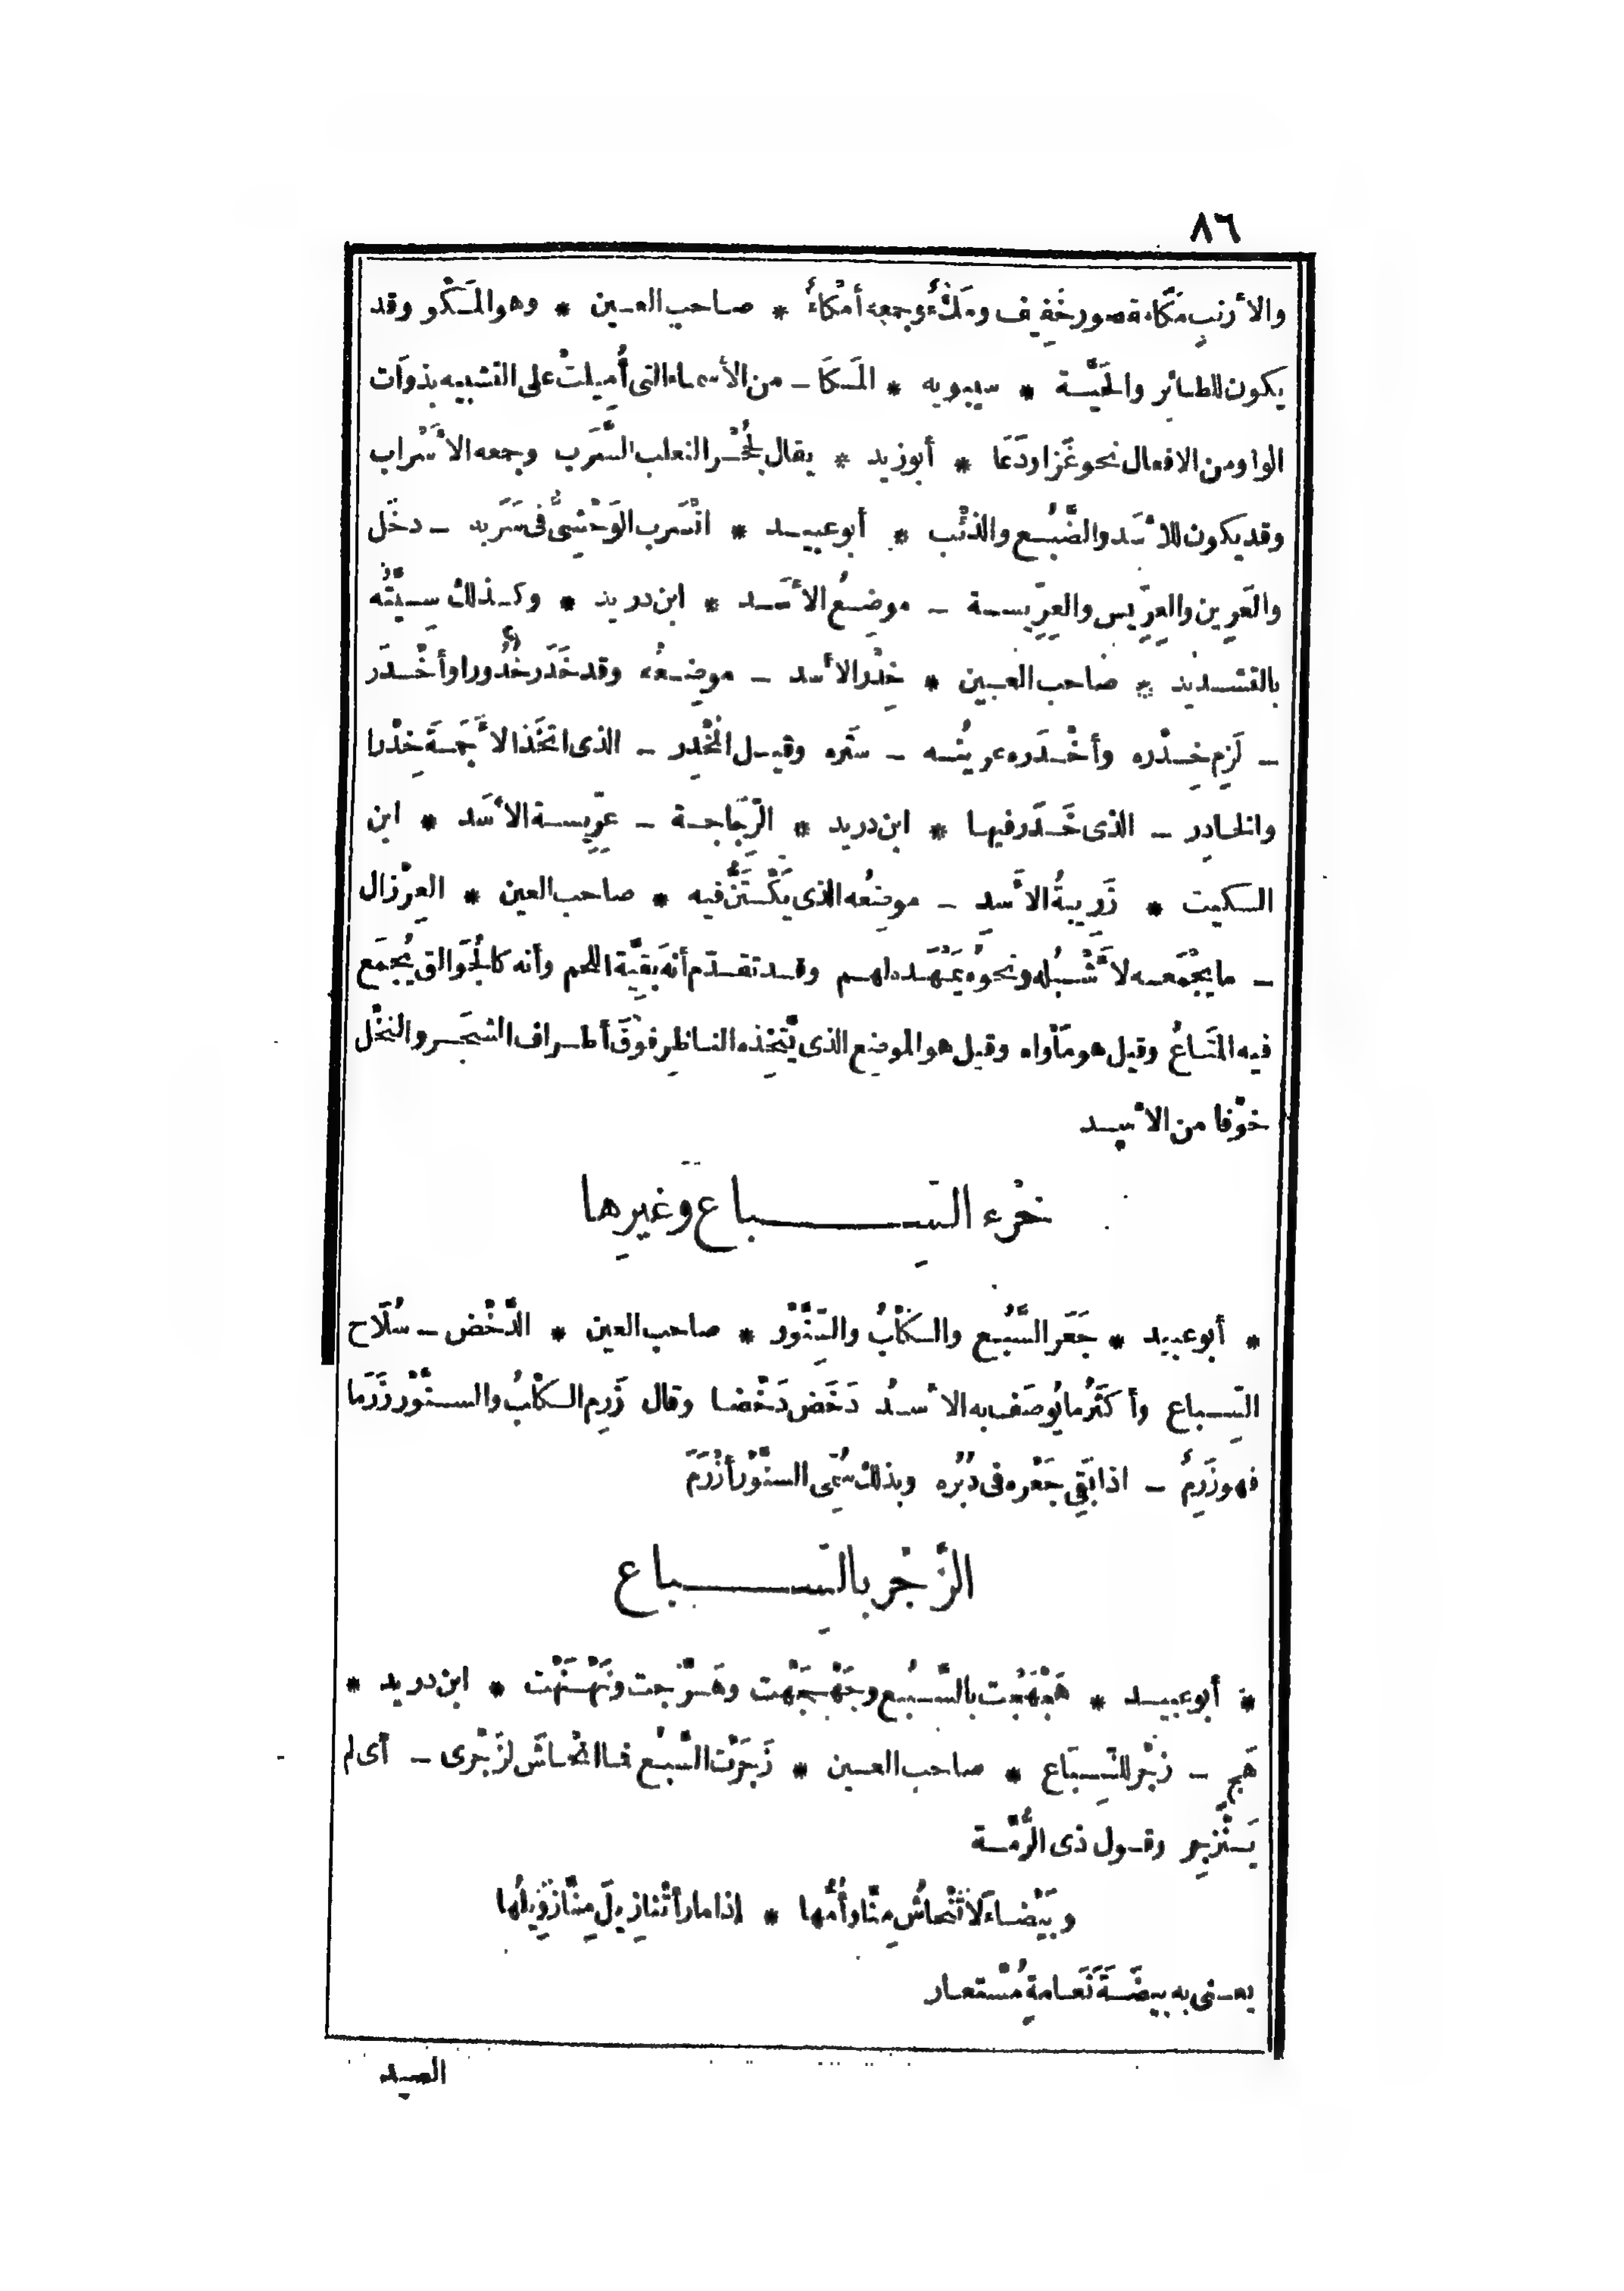 ٨٦
والأرنب مَكًا مقصور خَفِيف ومَكْءٌ وجمعه أمْكاءٌ * صاحب العين * وهو المَكْو وقد
يكون للطائر والحَيَّة * سيبويه * المَكَا – من الأسماء التى أُمِيلتْ على التشبيه بذوات
الواو من الافعال نحو غَزا ودَعَا * أبو زيد * يقال لجُحْر الثعلب السَّرَب وجمعه الأسْراب
وقد يكون للأسَد والضَّبُع والذئْب * أبو عبيد * انْسَرب الوَحْشِىُّ فى سَرَبه – دخَل
والعَرِين والعِرِّيس والعِرِّيسة – موضِعُ الأسَد * ابن دريد * وكذلك سِيَّتُه
بالتشديد * صاحب العين * خِدْر الأسد – موضِعُه وقد خَدَر خُدُورا وأخْدَر
– لَزِم خِدْره وأخْدَره عرينُه – سَتَره وقيل المُخْدِر – الذى اتَّخَذ الأَجَمَة خِدْرا
والخادِر – الذى خَدَر فيها * ابن دريد * الزَّمجَاجة – عِرِّيسة الأسَد * ابن
السكيت * زَرِيبةُ الأسَدِ – موضِعُه الذى يَكْتَنُّ فيه * صاحب العين * العِرْزال
– ما يجْمَعه لأشْبُله ونحوُه يُمَهِّده لهم وقد تقدّم أنه بَقِيَّة اللحم وأنه كالجُوَالق يُجْمَع
فيه المَتَاعُ وقيل هو مَأْواه وقيل هو الموضع الذى يَتَّخِذه الناظِر فَوْقَ أطراف الشجَر والنخْل
خَوْفا من الأسد
خُرْء السِّباع وغيرِها
* أبو عبيد * جَعَر السَّبُع والكلْبُ والسِّنَّوْر * صاحب العين * الدَّخْض – سُلَاح
السِّباع وأكثَرُ ما يُوصَف به الأسدُ دَخَض دَخْضا وقال زَرِم الكلْبُ والسنَّوْر زَرَما
فهو زَرِمٌ – اذا بَقِى جَعْره فى دُبُره وبذلك سُمِّى السنَّوْر أزْرَمَ
الزَّجْر بالسِّباع
* أبو عبيد * هَجْهَجْت بالسَّبُع وجَهْجَهْت وهَرَّجت ونَهْنَهْت * ابن دريد *
هَجٍ – زجْر للسِّبَاع * صاحب العين * زَجَرْت السَّبُع فما انْحاشَ لزَجْرى – أى لم
يَنْزَجِر وقول ذى الرُّمَّة
وبَيْضاءَ لا تَنْحاشُ مِنَّا وأُمُّها * إذا ما رأتْنا زِيلَ مِنَّا زَوِيلُها
يعنى به بيضَةَ نَعامةٍ مُسْتعار
الصيد